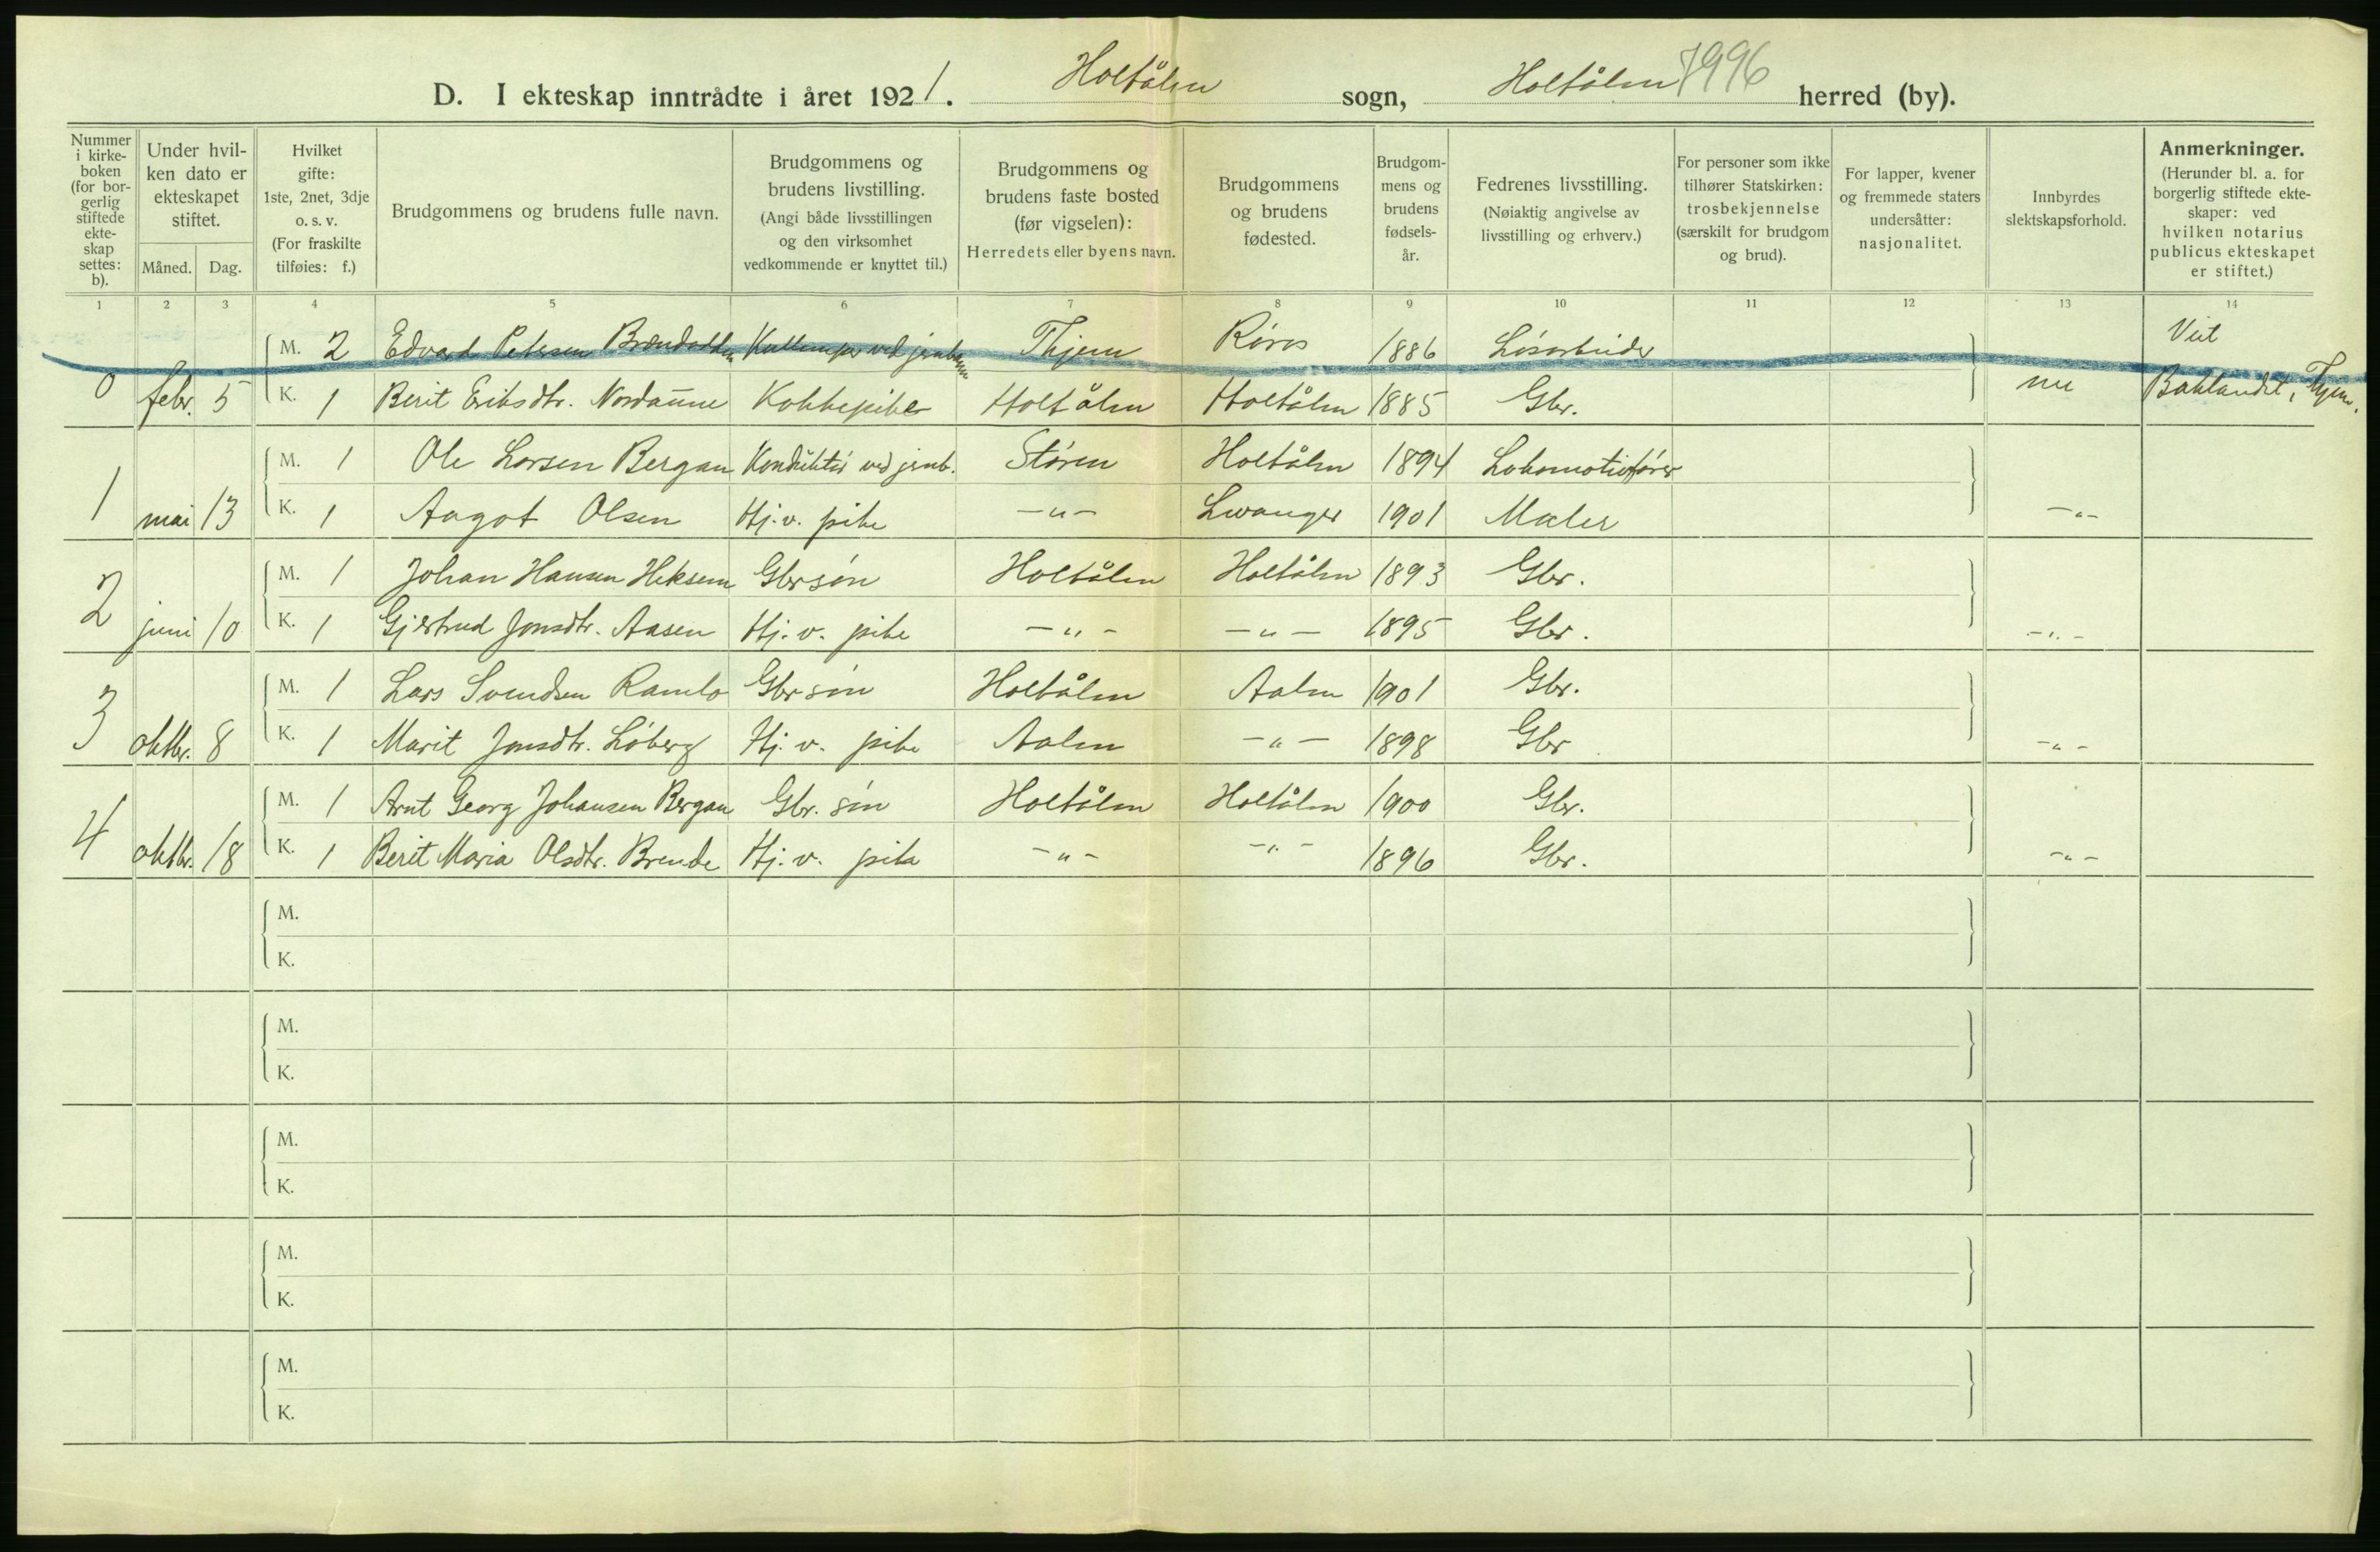 D. I ekteskap inntrådte i året 1921. Holtålen sogn, Holtålen 7996 herred (by).
Nummer i kirke-boken (for bor-gerlig stiftede ekte-skap settes: b).
Under hvil-ken dato er ekteskapet stiftet.
Måned. Dag.
Hvilket gifte: 1ste, 2net, 3dje o. s. v. (For fraskilte tilføies: f.)
Brudgommens og brudens fulle navn.
Brudgommens og brudens livstilling. (Angi både livsstillingen og den virksomhet vedkommende er knyttet til.)
Brudgommens og brudens faste bosted (før vigselen): Herredets eller byens navn.
Brudgommens og brudens fødested.
Brudgom-mens og brudens fødsels-år.
Fedrenes livsstilling. (Nøiaktig angivelse av livsstilling og erhverv.)
For personer som ikke tilhører Statskirken: trosbekjennelse (særskilt for brudgom og brud).
For lapper, kvener og fremmede staters undersåtter: nasjonalitet.
Innbyrdes slektskapsforhold.
Anmerkninger. (Herunder bl. a. for borgerlig stiftede ekte-skaper: ved hvilken notarius publicus ekteskapet er stiftet.)
1 2 3 4 5 6 7 8 9 10 11 12 13 14
M. 2 Edvard Petersen ved Thjem Røros 1886 Løsarbeider Viet
0 febr. 5 K. 1 Berit Eriksdtr. Nordaune Kokkepike Holtålen Holtålen 1885 Gbr. nei Baklandet, Thjem.
M. 1 Ole Larsen Bergan Konduktør ved jernb. Støren Holtålen 1894 Lokomotivfører
1 mai 13 K. 1 Aagot Olsen Hj. v. pike -"- Levanger 1901 Maler -"-
M. 1 Johan Hansen Heksem Gbrsøn Holtålen Holtålen 1893 Gbr.
2 juni 10 K. 1 Gjertrud Jonsdtr. Aasen Hj. v. pike -"- -"- 1895 Gbr. -"-
M. 1 Lars Svendsen Ramlo Gbrsøn Holtålen Aalen 1901 Gbr.
3 oktbr. 8 K. 1 Marit Jonsdtr. Løberg Hj. v. pike Aalen -"- 1898 Gbr -"-
M. 1 Arnt Georg Johansen Bergan Gbr. søn Holtålen Holtålen 1900 Gbr.
4 oktbr. 18 K. 1 Berit Maria Olsdtr. Brende Hj. v. pike -"- -"- 1896 Gbr. -"-
M.
K.
M.
K.
M.
K.
M.
K.
M.
K.